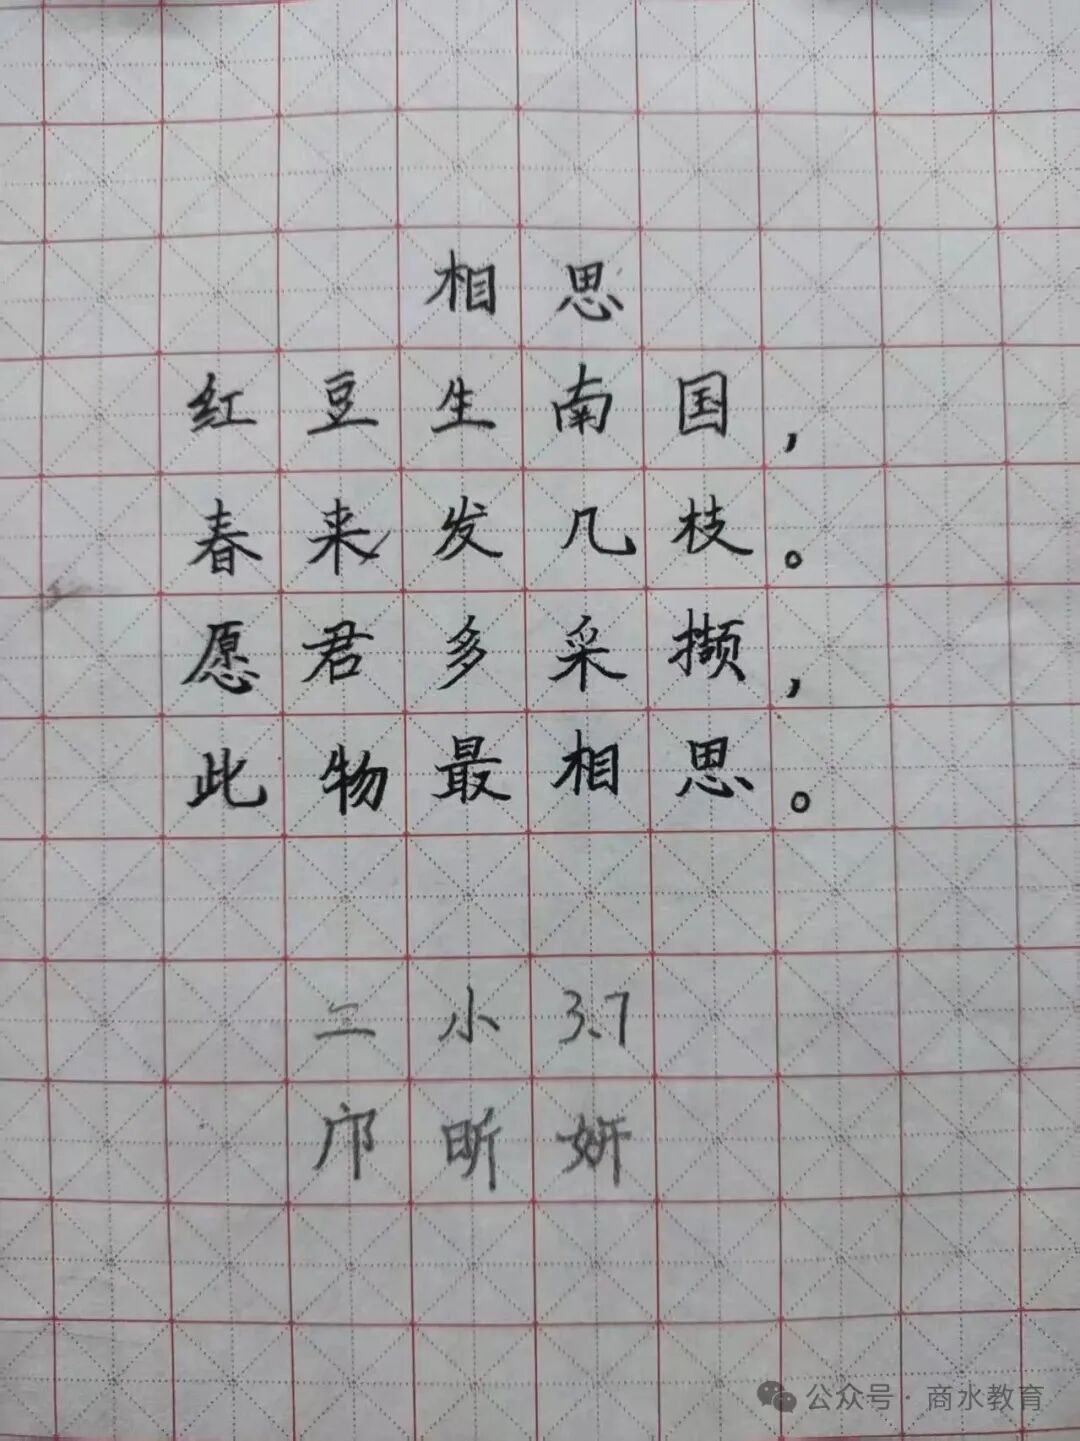 相思
红豆生南国，
春来发几枝。
愿君多采撷，
此物最相思。
二小 3.7
邝昕妍
公众号·商水教育